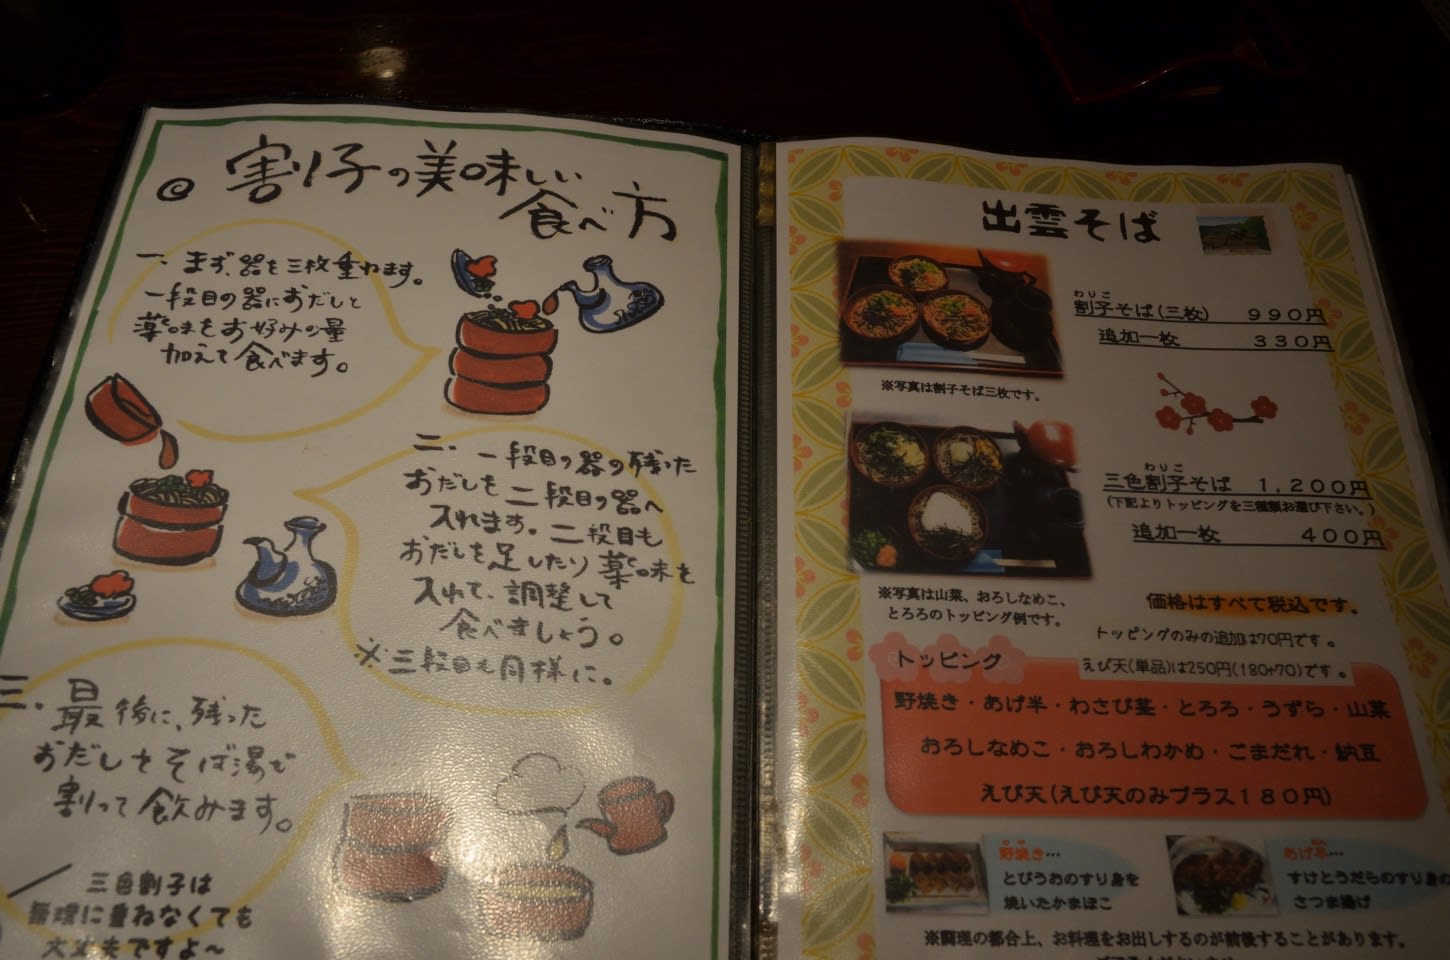 割り子の美味しい
食べ方
一、まず、器を三枚重ねます。
一段目の器におだしと
薬味をお好みの量
加えて食べます。
二、一段目の器の残った
おだしを二段目の器へ
入れます。二段目も
おだしを足したり薬味を
入れて、調整して
食べましょう。
※三段目も同様に。
三、最後に、残った
おだしをそば湯で
割って飲みます。
三色割子は
無理に重ねなくても
大丈夫ですよ~
出雲そば
わりご
割子そば(三枚) 990円
追加一枚 330円
※写真は割子そば三枚です。
わりご
三色割子そば 1,200円
(下記よりトッピングを三種類お選び下さい。)
追加一枚 400円
※写真は山菜、おろしなめこ、
とろろのトッピング例です。
価格はすべて税込です。
トッピングのみの追加は70円です。
えび天(単品)は250円(180+70)です。
トッピング
野焼き・あげ半・わさび茎・とろろ・うずら・山菜
おろしなめこ・おろしわかめ・ごまだれ・納豆
えび天(えび天のみプラス180円)
野焼き…
とびうおのすり身を
焼いたかまぼこ
あげ半…
すけとうだらのすり身の
さつま揚げ
※調理の都合上、お料理をお出しするのが前後することがあります。